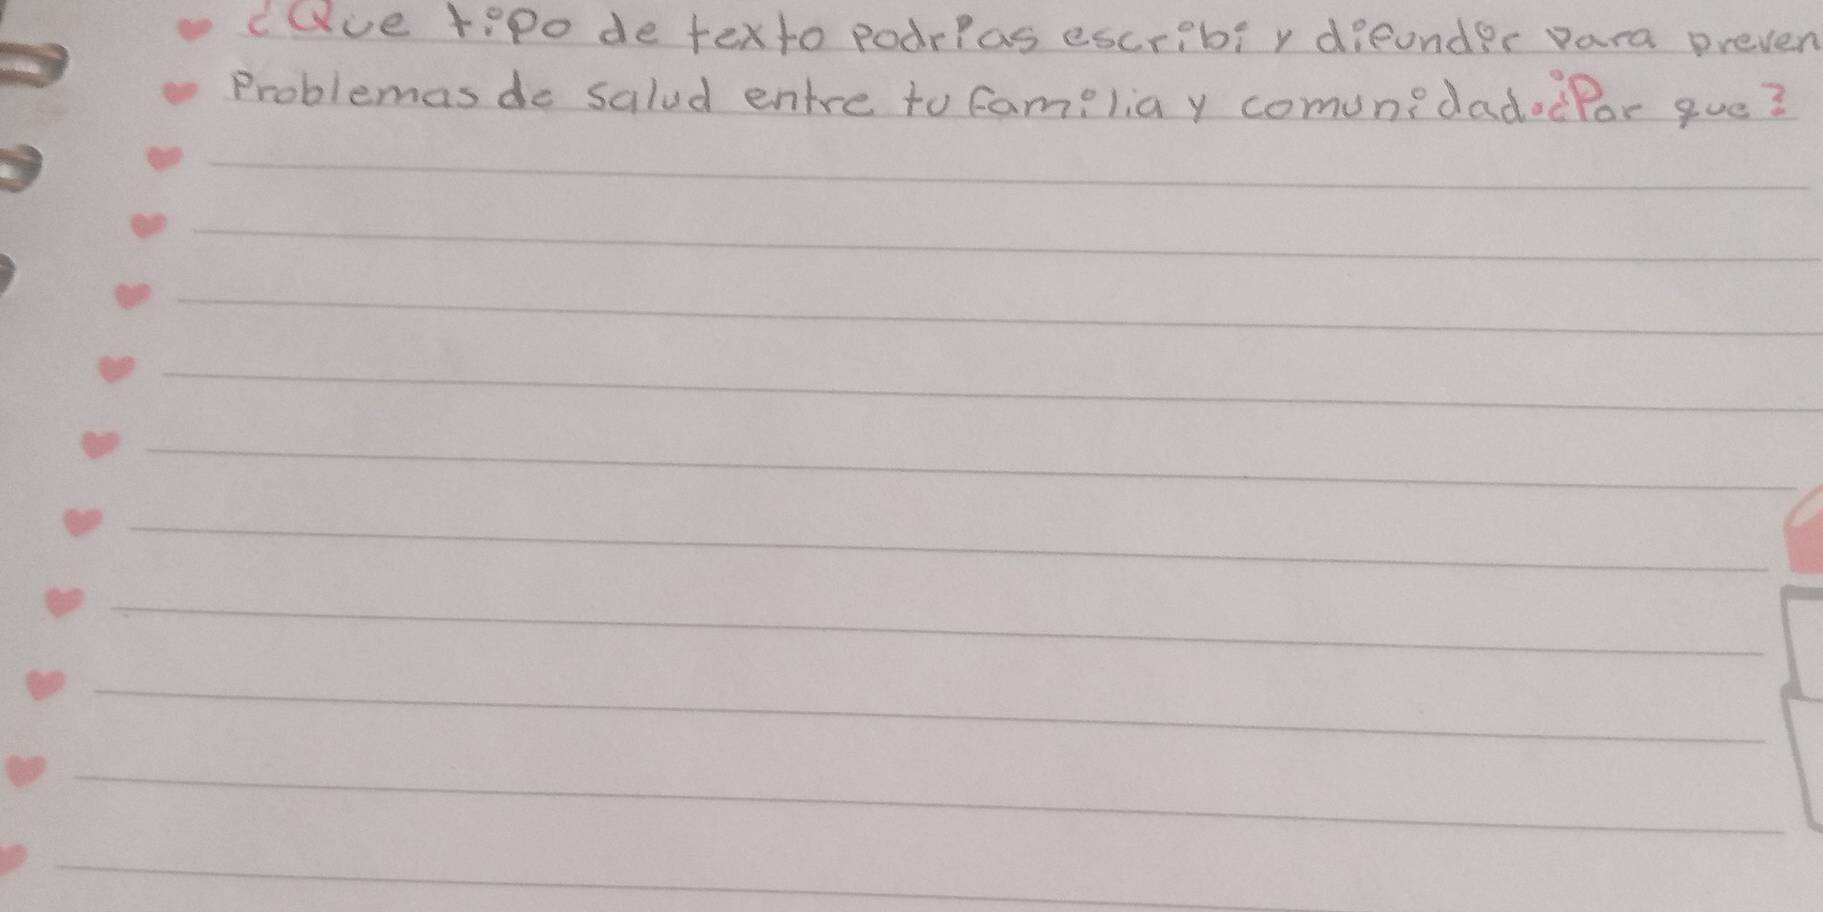 ¿Que tipo de texto podrias escribi y difundir para preven
Problemas de salud entre tu familia y comunidad.¿Por que?